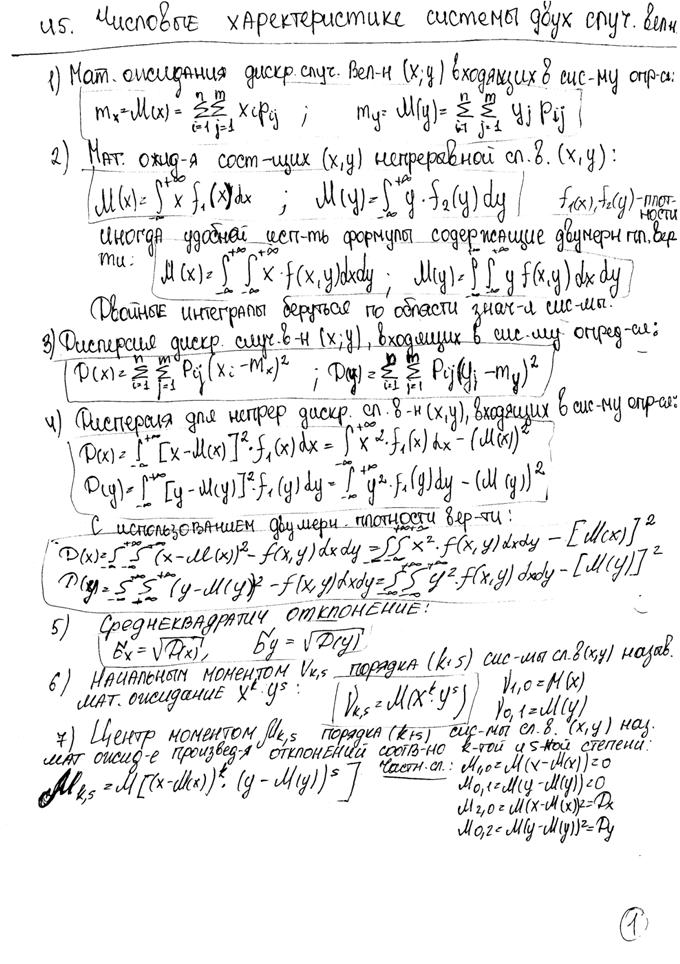 45. Числовые характеристике системы двух случ. велн
1) Мат. ожидания дискр. случ. Вел-н (x;y) входящих в сис-му опр-ся:
mx = M(x) = Σ(i=1..n) Σ(j=1..m) xi pij ; my = M(y) = Σ(i=1..n) Σ(j=1..m) yj pij
2) Мат. ожид-я сост-щих (x,y) непрерывной сл. в. (x,y):
M(x) = ∫(-∞..+∞) x f1(x) dx ; M(y) = ∫(-∞..+∞) y · f2(y) dy f1(x), f2(y) - плот-
ности
Иногда удобней исп-ть формулы содержащие двумерн пл. вер
ти: M(x) = ∫∫(-∞..+∞) x · f(x,y) dxdy ; M(y) = ∫∫ y f(x,y) dx dy
Двойные интегралы беруться по области знач-я сис-мы.
3) Дисперсия дискр. случ. в-н (x;y), входящих в сис-му опред-ся:
D(x) = Σ(i=1..n) Σ(j=1..m) Pij (xi - mx)² ; D(y) = Σ(i=1..n) Σ(j=1..m) Pij (yj - my)²
4) Дисперсия для непрер дискр. сл. в-н (x,y), входящих в сис-му опр-ся:
D(x) = ∫(-∞..+∞) [x - M(x)]² · f1(x) dx = ∫(-∞..+∞) x² · f1(x) dx - (M(x))²
D(y) = ∫(-∞..+∞) [y - M(y)]² · f1(y) dy = ∫(-∞..+∞) y² · f1(y) dy - (M(y))²
С использованием двумерн. плотности вер-ти:
D(x) = ∫∫ (x - M(x))² - f(x,y) dxdy = ∫∫ x² · f(x,y) dxdy - [M(x)]²
D(y) = ∫∫ (y - M(y))² - f(x,y) dxdy = ∫∫ y² · f(x,y) dxdy - [M(y)]²
5) Среднеквадратич отклонение:
σx = √D(x), σy = √D(y)
6) Начальным моментом Vk,s порядка (k+s) сис-мы сл. в (x,y) назыв.
мат. ожидание x^k · y^s: Vk,s = M(x^k · y^s) V1,0 = M(x)
V0,1 = M(y)
7) Центр моментом μk,s порядка (k+s) сис-мы сл. в. (x,y) наз.
мат ожид-е произвед-я отклонений соотв-но k-той и s-ной степени:
Mk,s = M[(x - M(x))^k · (y - M(y))^s] Частн. сл.: M1,0 = M(x - M(x)) = 0
M0,1 = M(y - M(y)) = 0
M2,0 = M(x - M(x))² = Dx
M0,2 = M(y - M(y))² = Dy
1